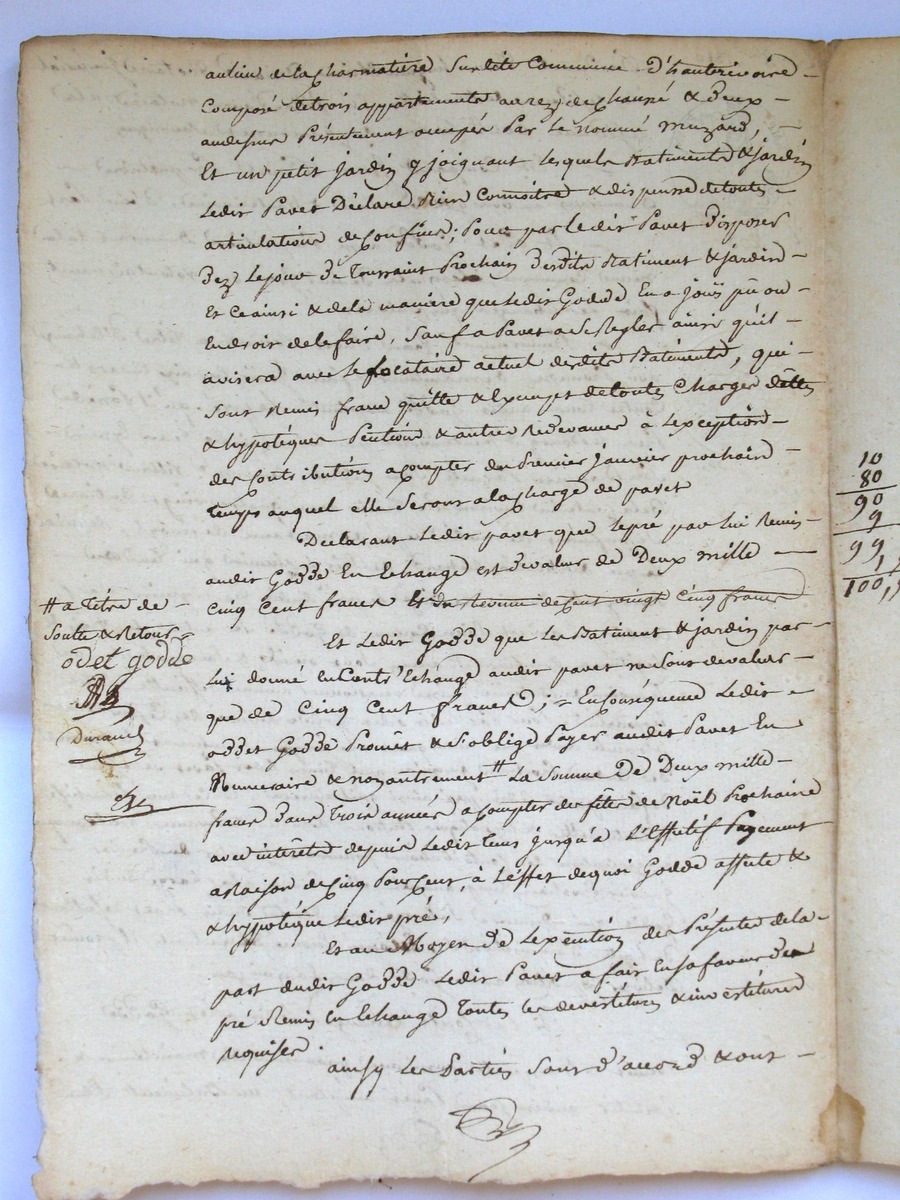 au lieu de la Charmatière Sur dite Commune d'hauterivoire
Composé de trois appartements au rez de chaussé & deux
au dessus Présentement occupés Par le nommé Muzard,
Et un petit Jardin y joignant lesquels Batiments & jardin
Ledit Pavet Déclare Bien Connoitre & dispense de toutes
articulations de Confins; Pour par ledit Pavet disposer
dez Le jour De Toussaint Prochain desdits Batiment & jardin
Et Ce ainsi & de la maniere que ledit Goddé En a Joüi pû ou
En droit de le faire, Sauf a Pavet a Se Regler ainsi qu'il
avisera avec le Locataire actuel desdits Batiments, qui
Sont Remis franc quitte & Exempt de toutes Charges dettes
& hypotéques Pentions & autres Redevances à L'exception
des Contributions a Compter du Premier Janvier prochain
temps auquel elle Seront a la Charge de pavet
Declarant Ledit pavet que le pré par lui Remis
audit Goddé En Echange est de valeur de Deux mille
Cinq Cent francs Et du Revenu de Cent vingt Cinq francs
Et Ledit Goddé que les Batiment & jardin par
Lui donné en Contr'Echange audit pavet ne Sont de valeur
que de Cinq Cent francs; = En Conséquence Ledit
oddet Goddé Promêt & S'oblige Payer audit Pavet En
Numeraire & non autrement # La Somme De Deux mille
francs Dans Trois années a Compter des fêtes de Noël Prochaine
avec intérêts depuis Ledit tems jusqu'a L'Effétif Payement
a Raison de Cinq Pour Cent, à L'effet de quoi Goddé affecte &
& hypotéque Ledit pré,
Et au Moyen De L'exécution des Présentes de la
part dudit Goddé Ledit Pavet a fait En Sa faveur du
pré Remis En Echange Toutes les devestitures & investitures
Requises.
ainsy Les Parties Sont d'accord & ont
# a Titre de
Soulte & Retour
odet godde
Durand
10
80
90
9
99,
100,